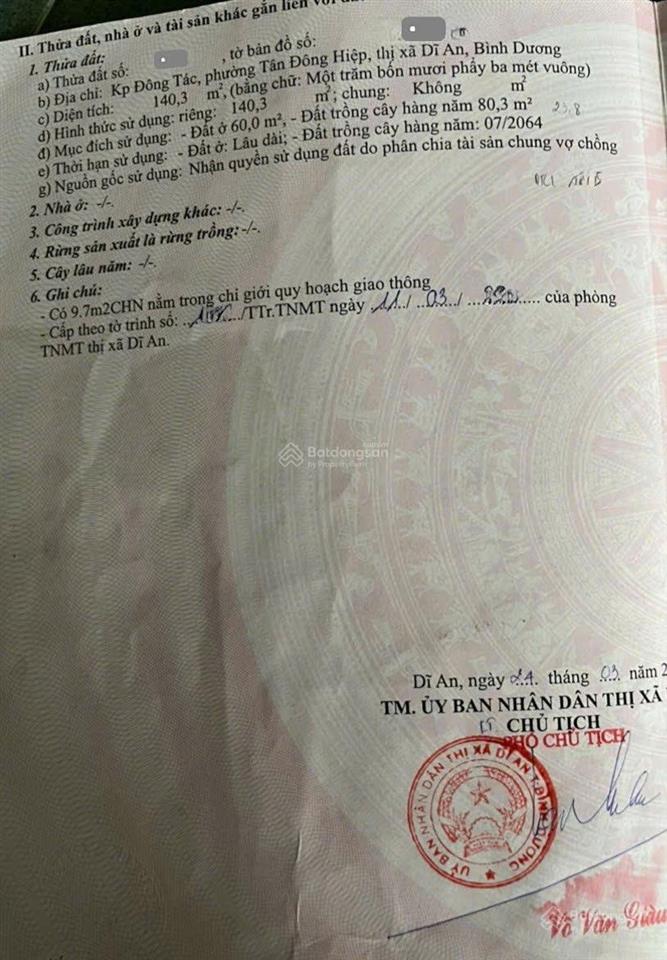 II. Thửa đất, nhà ở và tài sản khác gắn liền với
1. Thửa đất:
a) Thửa đất số: , tờ bản đồ số:
b) Địa chỉ: Kp Đông Tác, phường Tân Đông Hiệp, thị xã Dĩ An, Bình Dương
c) Diện tích: 140,3 m², (bằng chữ: Một trăm bốn mươi phẩy ba mét vuông)
d) Hình thức sử dụng: riêng: 140,3 m²; chung: Không m²
đ) Mục đích sử dụng: - Đất ở 60,0 m², - Đất trồng cây hàng năm 80,3 m² 23,8
e) Thời hạn sử dụng: - Đất ở: Lâu dài; - Đất trồng cây hàng năm: 07/2064
g) Nguồn gốc sử dụng: Nhận quyền sử dụng đất do phân chia tài sản chung vợ chồng
2. Nhà ở: -/-.
3. Công trình xây dựng khác: -/-.
4. Rừng sản xuất là rừng trồng:-/-.
5. Cây lâu năm: -/-.
6. Ghi chú:
- Có 9.7m2CHN nằm trong chỉ giới quy hoạch giao thông
- Cấp theo tờ trình số: /TTr.TNMT ngày 11/ 03/ của phòng
TNMT thị xã Dĩ An.
Batdongsan
by PropertyGuru
Dĩ An, ngày 24 tháng 03 năm 2
TM. ỦY BAN NHÂN DÂN THỊ XÃ
CHỦ TỊCH
PHÓ CHỦ TỊCH
ỦY BAN NHÂN DÂN THỊ XÃ DĨ AN T.BÌNH DƯƠNG
Võ Văn Giàu